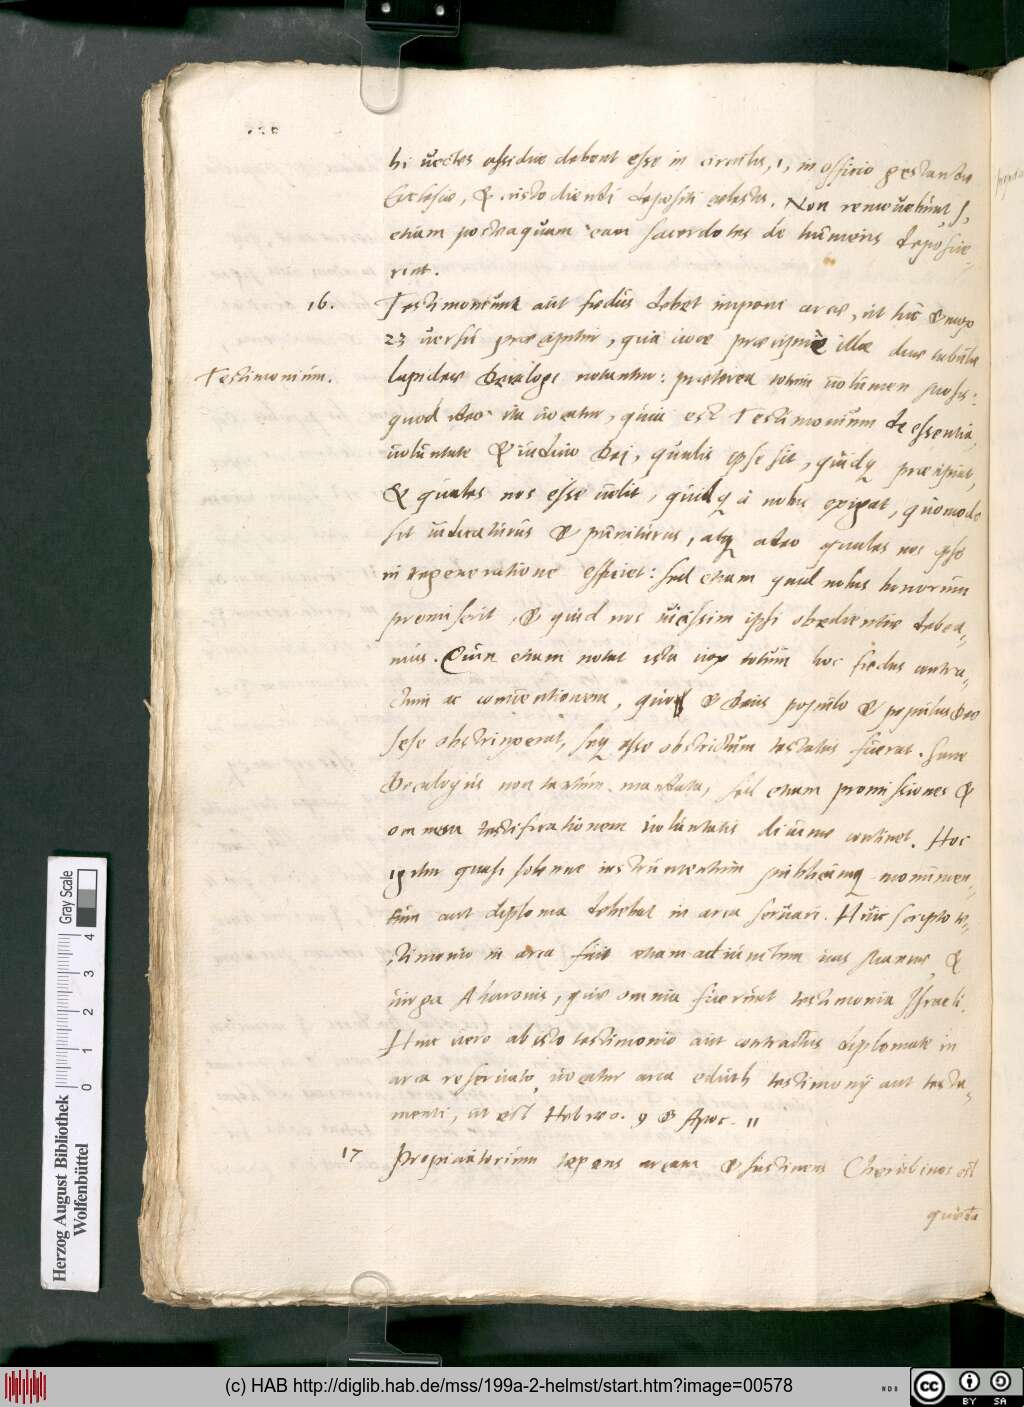 hi uectes assidue debent esse in circulis, i, in officio gestandae
Ecclesiae, & custodiendi depositi coelestis. Non remouebunt s,
etiam postea quam eam sacerdotes de humeris deposue-
rint.
16. Testimonium aut foedus debet imponi arcae, ut hic &
23 uersu praecipitur, qua uoce praecipue illae duae tabulae
Testimonium.
lapideae Decalogi notantur: praeterea totum uolumen Mosis:
quod ideo ita uocatur, quia est Testimonium de essentia,
uoluntate & iudicio Dei, qualis ipse sit, quidq praecipiat,
& quales nos esse uelit, quidq à nobis exigat, quomodo
sit iudicaturus & puniturus, atq adeo quales nos ipse
in regeneratione efficiet: sed etiam quid nobis bonorum
promiserit, & quid nos uicissim ipsi obedientiae debea-
mus. Cum etiam notat ista uox totum hoc foedus contra-
ctum ac conuentionem, & Deus populo & populus Deo
sese obstrinxerat, seq esse obstrictum testatus fuerat. Sane
Decalogus non tantum mandata, sed etiam promissiones &
omnem testificationem uoluntatis diuinae continet. Hoc
igitur quasi solenne instrumentum publicumq monumen-
tum aut diploma debebat in arca seruari. Huic scripto te-
stimonio in arca fuit etiam adiunctum uas Mannae, &
uirga Aharonis, quae omnia fuerunt testimonia Israeli.
Hinc uero ab isto testimonio aut contractus diplomate in
arca reseruato, uocatur arca eduth testimonij aut testa-
menti, ut est Hebrae. 9 & Apoc. 11
17 Propiciatorium tegens arcam & sustinens Cherubinos est
(c) HAB http://diglib.hab.de/mss/199a-2-helmst/start.htm?image=00578
Herzog August Bibliothek
Wolfenbüttel
0 1 2 3 4
Gray Scale
cc BY SA